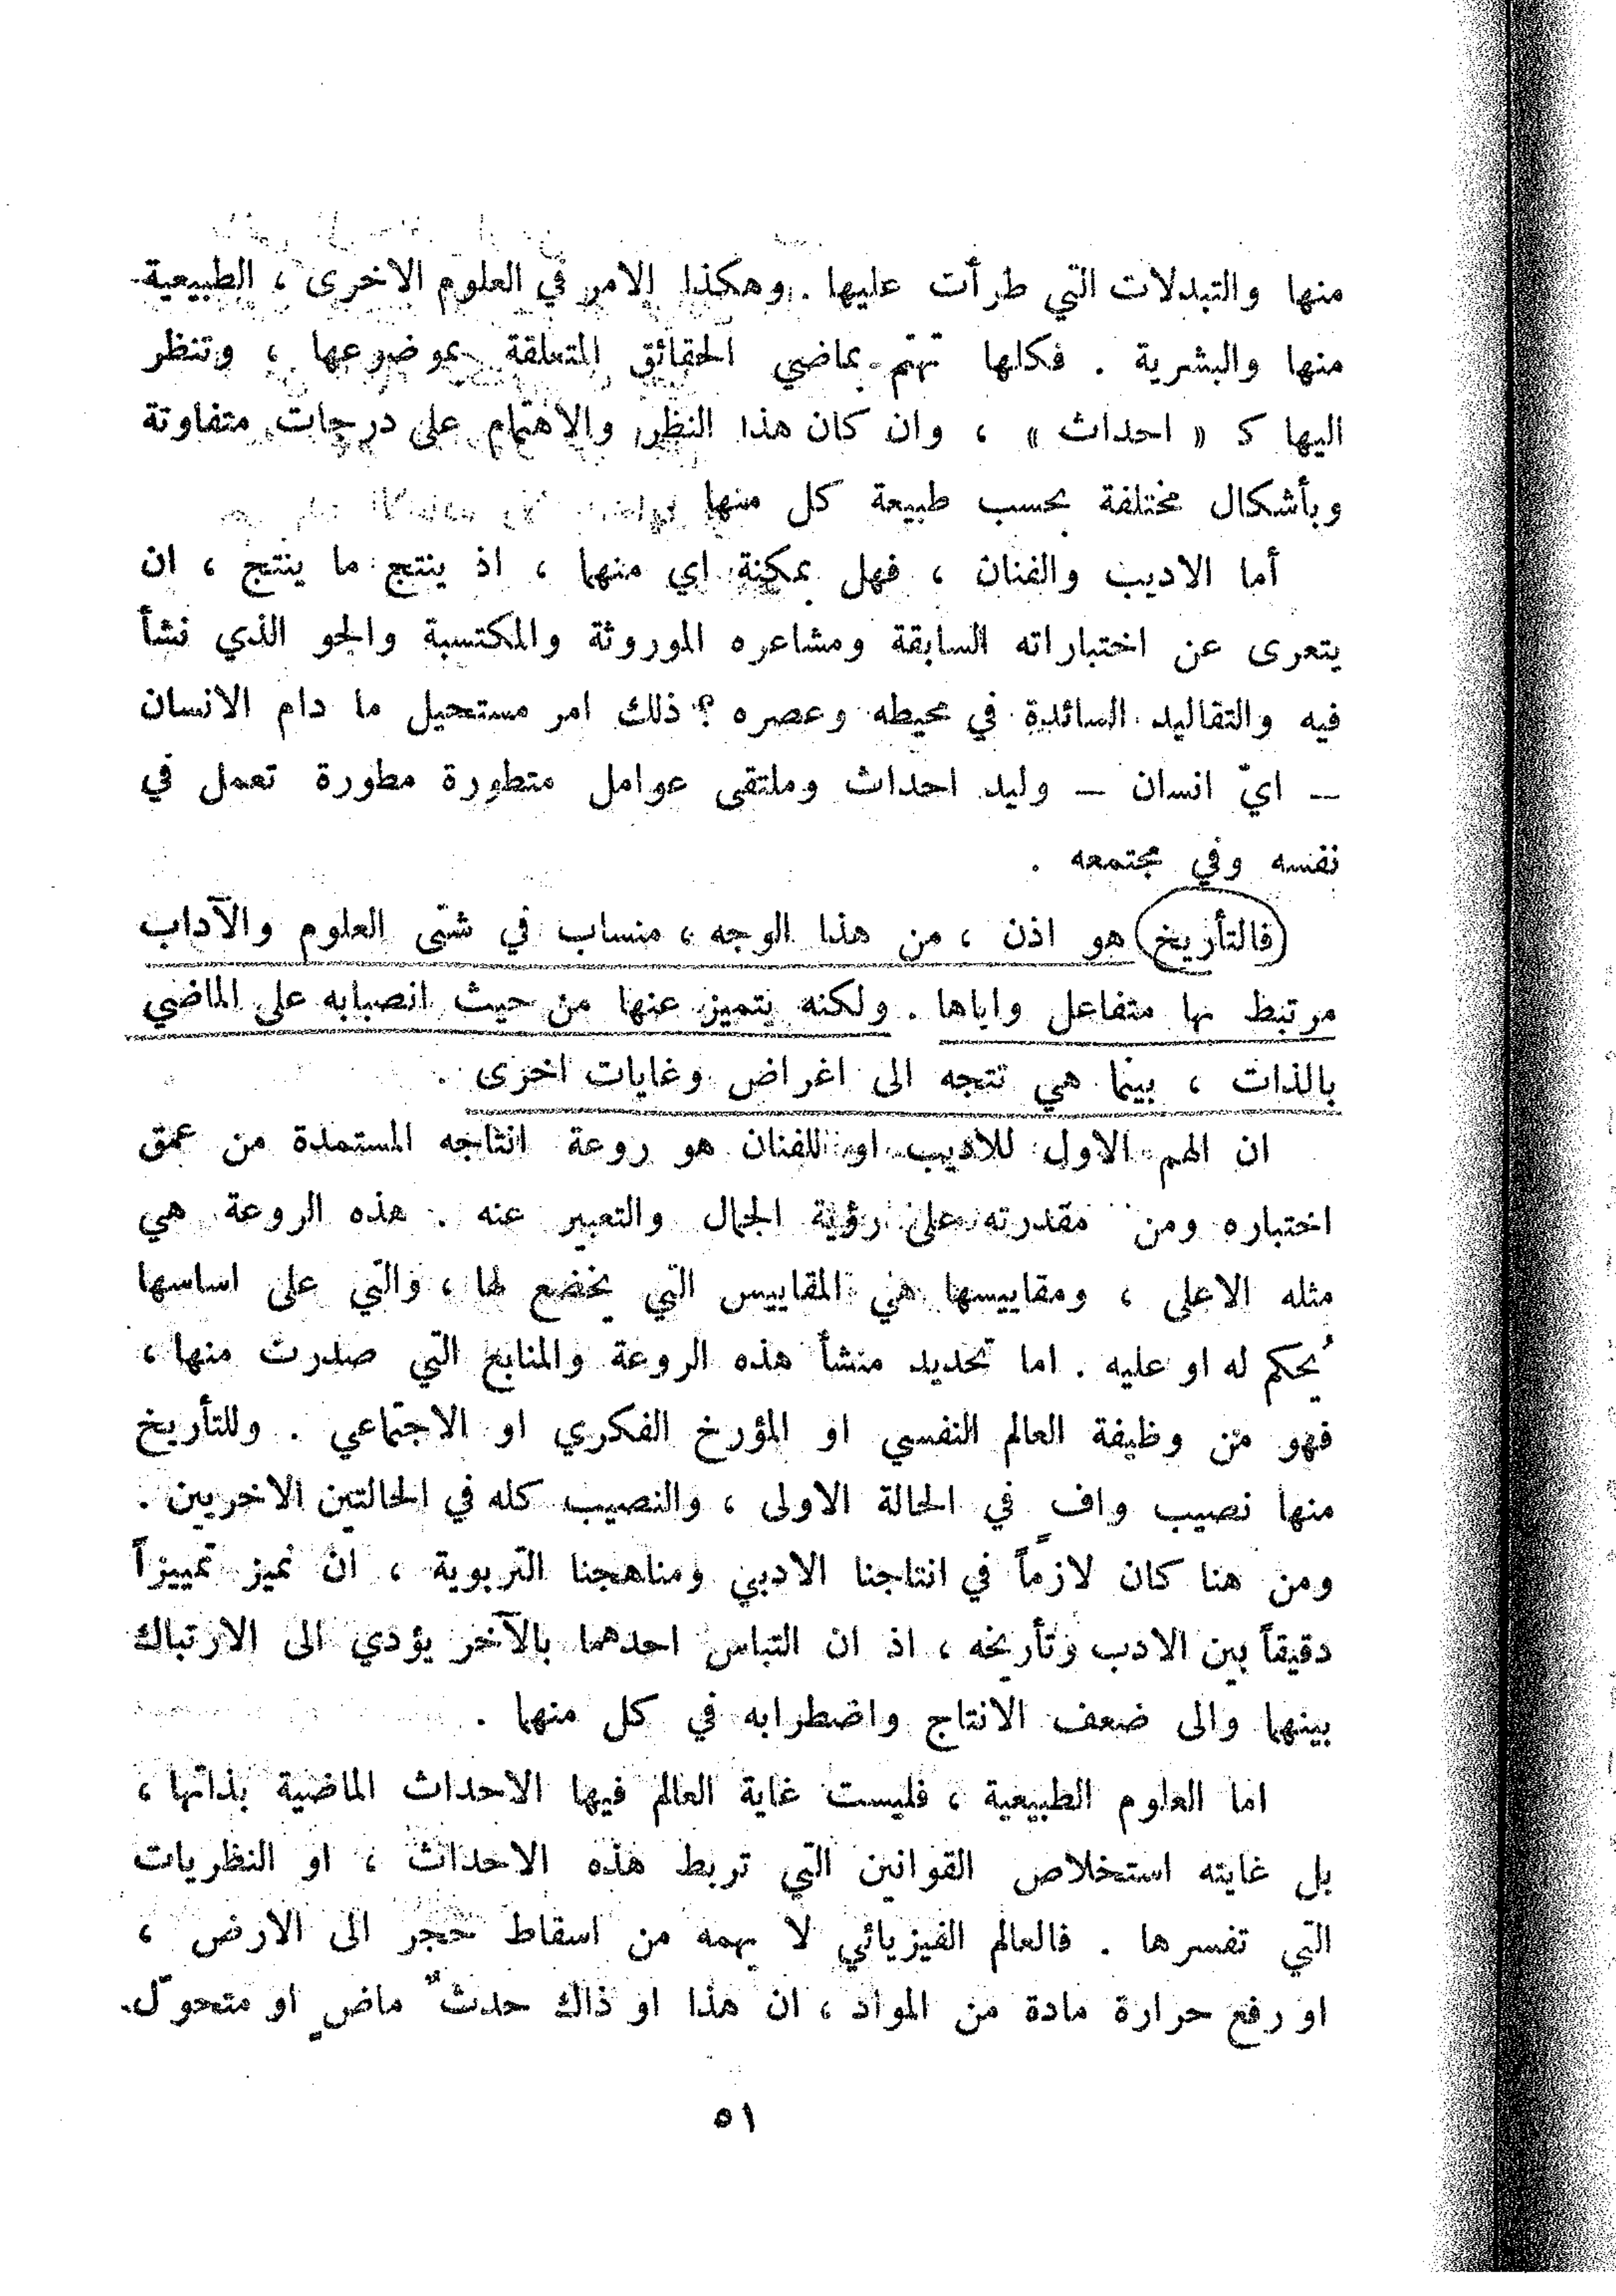 منها والتبدلات التي طرأت عليها . وهكذا الامر في العلوم الاخرى ، الطبيعية
منها والبشرية . فكلها تهتم بماضي الحقائق المتعلقة بموضوعها ، وتنظر
اليها ك « احداث » ، وان كان هذا النظر والاهتمام على درجات متفاوتة
وبأشكال مختلفة بحسب طبيعة كل منها
أما الاديب والفنان ، فهل بمكنة اي منهما ، اذ ينتج ما ينتج ، ان
يتعرى عن اختباراته السابقة ومشاعره الموروثة والمكتسبة والجو الذي نشأ
فيه والتقاليد السائدة في محيطه وعصره ؟ ذلك امر مستحيل ما دام الانسان
– ايّ انسان – وليد احداث وملتقى عوامل متطورة مطورة تعمل في
نفسه وفي مجتمعه .
فالتأريخ هو اذن ، من هذا الوجه ، منساب في شتى العلوم والآداب
مرتبط بها متفاعل واياها . ولكنه يتميز عنها من حيث انصبابه على الماضي
بالذات ، بينما هي تتجه الى اغراض وغايات اخرى .
ان الهم الاول للاديب او للفنان هو روعة انتاجه المستمدة من عمق
اختباره ومن مقدرته على رؤية الجمال والتعبير عنه . هذه الروعة هي
مثله الاعلى ، ومقاييسها هي المقاييس التي يخضع لها ، والتي على اساسها
يُحكم له او عليه . اما تحديد منشأ هذه الروعة والمنابع التي صدرت منها ،
فهو من وظيفة العالم النفسي او المؤرخ الفكري او الاجتماعي . وللتأريخ
منها نصيب واف في الحالة الاولى ، والنصيب كله في الحالتين الاخريين .
ومن هنا كان لازماً في انتاجنا الادبي ومناهجنا التربوية ، ان نميز تمييزاً
دقيقاً بين الادب وتأريخه ، اذ ان التباس احدهما بالآخر يؤدي الى الارتباك
بينهما والى ضعف الانتاج واضطرابه في كل منهما .
اما العلوم الطبيعية ، فليست غاية العالم فيها الاحداث الماضية بذاتها ،
بل غايته استخلاص القوانين التي تربط هذه الاحداث ، او النظريات
التي تفسرها . فالعالم الفيزيائي لا يهمه من اسقاط حجر الى الارض ،
او رفع حرارة مادة من المواد ، ان هذا او ذاك حدثٌ ماضٍ او متحوّل
٥١